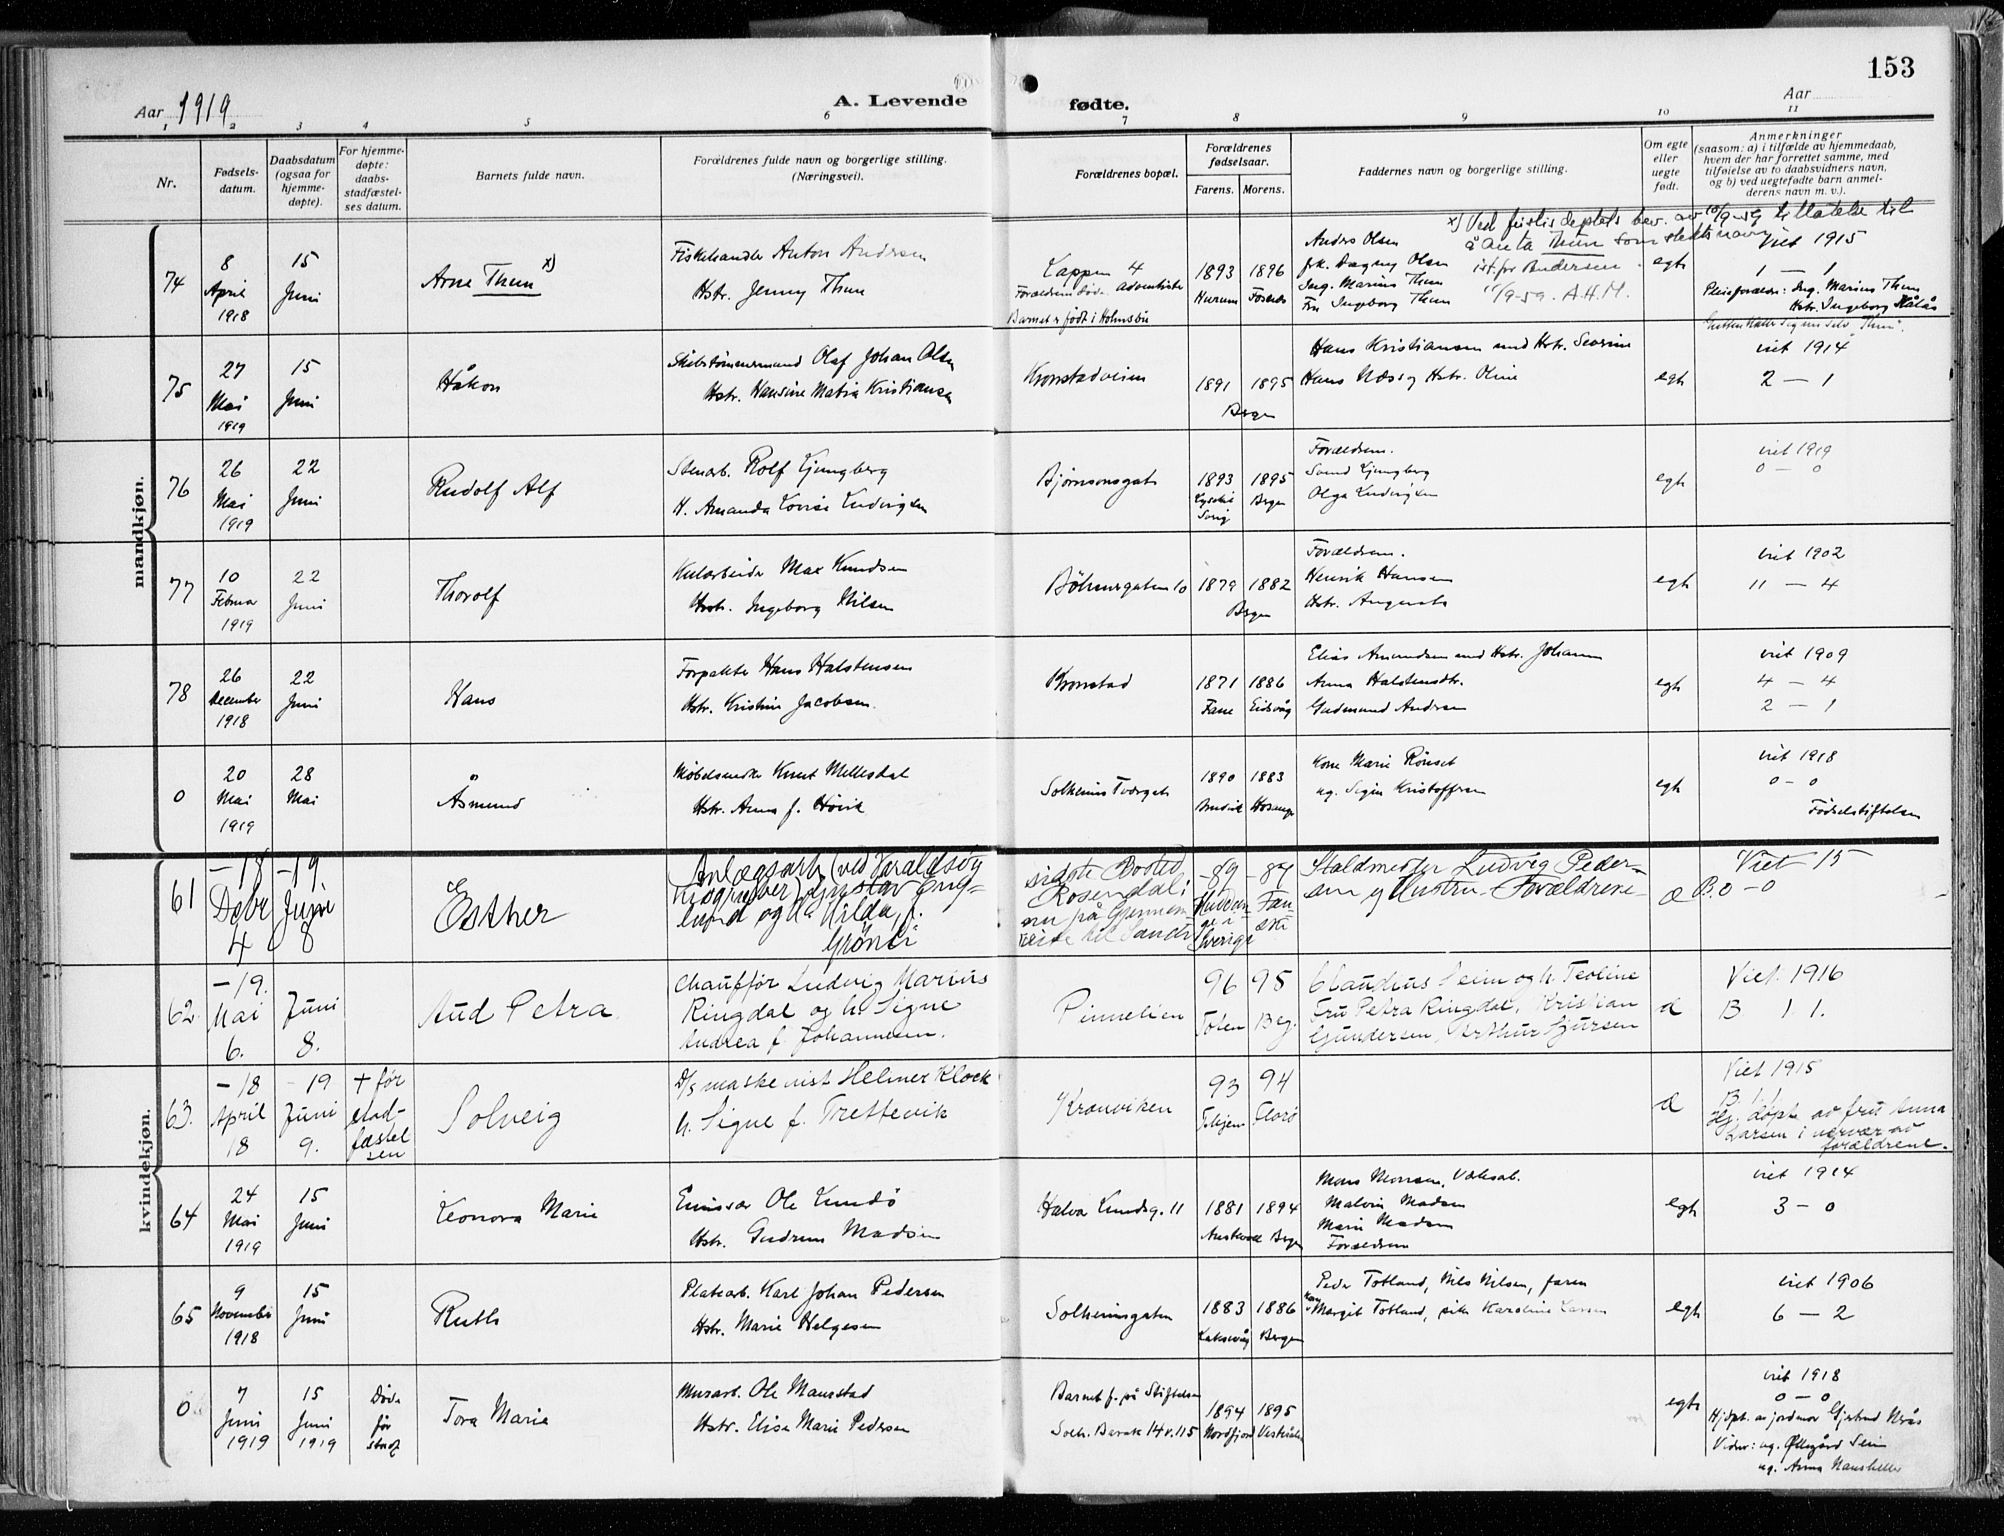 153
Aar 1919
A. Levende
fødte.
Aar
1 2 3 4 5 6 7 8 9 10 11
Nr.
Fødsels-
datum.
Daabsdatum
(ogsaa for
hjemme-
døpte).
For hjemme-
døpte:
daabs-
stadfæstel-
ses datum.
Barnets fulde navn.
Forældrenes fulde navn og borgerlige stilling.
(Næringsvei).
Forældrenes bopæl.
Forældrenes
fødselsaar.
Farens. Morens.
Faddernes navn og borgerlige stilling.
Om egte
eller
uegte
født.
Anmerkninger
(saasom: a) i tilfælde av hjemmedaab,
hvem der har forrettet samme, med
tilføielse av to daabsvidners navn,
og b) ved uegtefødte barn anmel-
derens navn m. v.).
mandkjøn.
x) Ved justis deptets bev. av 10/9-59 tillatelse til
å anta Thun som slektsnavn
ist. for Andersen
11/9-59. A.H.M.
74
8
April
1918
15
Juni
Arne Thun x)
Fiskehandler Anton Andersen
Hstr. Jenny Thun
Lappen 4
Forældrene døde
Barnet er født i Holmsbu
1893
Hurum
1896
Anders Olsen
frk. Dagny Olsen
Ing. Marius Thun
Fru Ingeborg Thun
egte
viet 1915
1 — 1
Pleieforældre: Ing. Marius Thun
Hstr. Ingeborg
75
27
Mai
1919
15
Juni
Håkon
Skibstømmermand Olaf Johan Olsen
Hstr. Hansine Matia Kristiansen
Kronstadveien
1891 1895
Bergen
Hans Kristiansen med Hstr. Severine
Hans Næss og Hstr. Oline
egte
viet 1914
2 — 1
76
26
Mai
1919
22
Juni
Rudolf Alf
Stenarb. Rolf Ljungberg
H. Amanda Lovise Ludvigsen
Bjørnsonsgate
1893
1895
Bergen
Forældrene.
Ljungberg
Olga Ludvigsen
egte
viet 1919
0 — 0
77
10
Februar
1919
22
Juni
Thorolf
Kularbeider Max Knudsen
Hstr. Ingeborg Nilsen
Bøhmergaten 10
1879 1882
Bergen
Forældrene.
Henrik Hansen
Hstr. Augusta
egte
viet 1902
11 — 4
78
26
December
1918
22
Juni
Hans
Forpakter Hans Halstensen
Hstr. Kristine Jacobsen.
Kronstad
1871
Fane
1886
Eidsvåg
Elias Amundsen med Hstr. Johanne
Anna Halstensdtr.
Gudmund Andersen
egte
viet 1909
4 — 4
2 — 1
0
20
Mai
1919
28
Mai
Åsmund
Møbelsnedker Knut Mellesdal
Hstr. Anna f. Høvik
Solheims Tværgate
1890
1883
Hosanger
Kone Marie Rønset
ug. Signe Kristoffersen
egte
viet 1918
0 — 0
Fødselstiftelsen
kvindekjøn.
61
— 18
Decbr
4
— 19
Juni
8
Esther
Anlægsarb. (ved Varaldsøy
Kisgruber) Gustav Eng-
lund og h. Hilda f.
Grønli
sidste Bosted
Rosendal;
nu på Gjennem-
reise til
-89
Sverige
-89
Fau-
ske
Staldmester Ludvig Peder-
sen og Hustru - Forældrene
æ
Viet 15
B. 0 — 0
62.
— 19.
Mai
6.
Juni
8.
Aud Petra
Chauffør Ludvig Marius
Ringdal og h. Signe
Andrea f. Johannesen.
Pinnelien
96
Toten
95
Beg.
Claudius Seim og h. Teoline
Fru Petra Ringdal, Kristian
Gundersen, Arthur Sjursen
æ
Viet. 1916
B 1. 1.
63.
— 18
April
18
— 19
Juni
9.
+ før
stad-
fæstel
sen
Solveig
D/s maskinist Helmer Klock
h. Signe f. Trettevik
Kranviken
93
94
Florø
æ
Viet 1915
B 1.1
Hj. døpt av fru Anna
Larsen i nærvær av
forældrene.
64
24
Mai
1919
15
Juni
Leonora Marie
Emissær Ole Lundø
Hstr. Gudrun Madsen
Halvor Lundsg. 11
1881
Austevoll
1894
Bergen
Mons Monsen, Vækselb.
Malvin Madsen
Marie Madsen
Forældrene
egte
viet 1914
3 — 0
65
9
November
1918
15
Juni
Ruth
Platearb. Karl Johan Pedersen
Hstr. Marie Helgesen
Solheimsgaten
1883
Laksevåg
1886
Bergen
Peder Totland, Nils Nilsen, faren
Margit Totland, pike Karoline Larsen
egte
viet 1906
6 — 2
0
7
Juni
1919
15
Juni
1919
Døde
før
stadf
Tora Marie
Murarb. Ole Maurstad
Hstr. Elise Marie Pedersen
Barnet f. på Stiftelsen
Solh. Barak 14 v. 115
1894
Nordfjord
1895
egte
viet 1918
0 — 0
Hjdpt. av jordmor Gjertrud
Vidner: ug. Øllegård Seim
ug. Anna